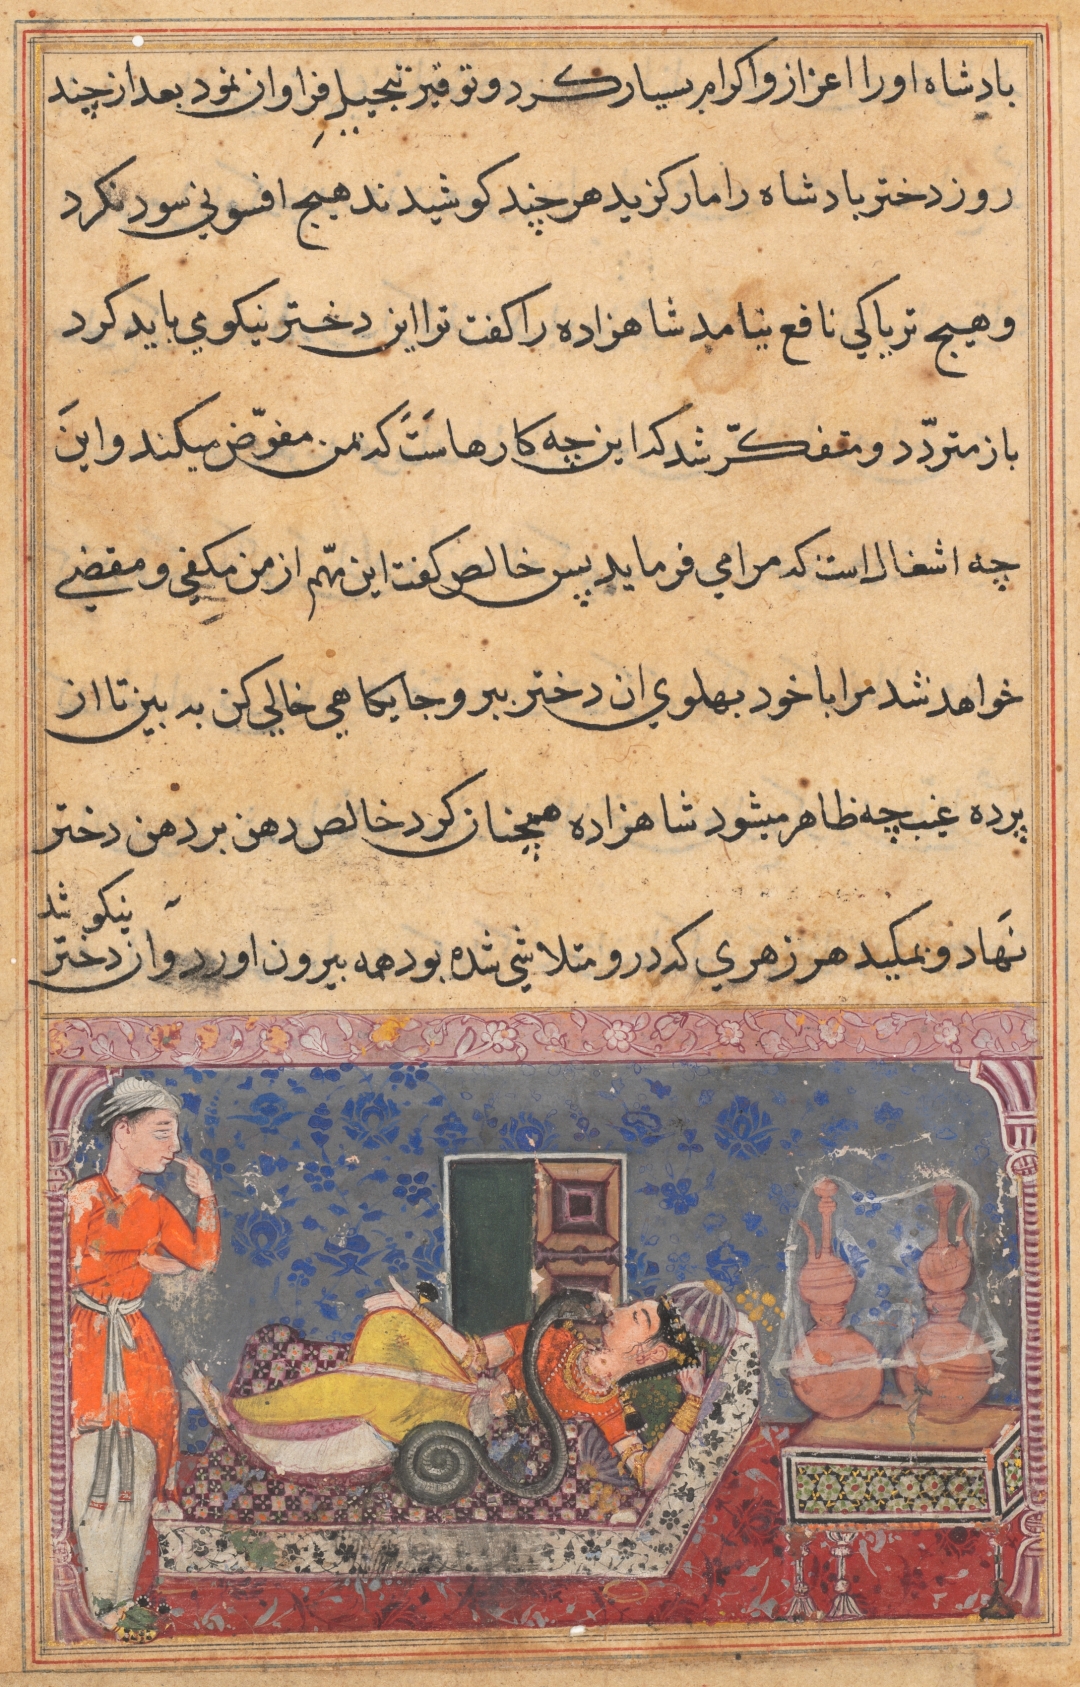 بادشاه اورا اعزاز واکرام بسیار کرد و توقیر و تبجیل فراوان نمود بعد از چند
روز دختر بادشاه را مار گزید هر چند کوشیدند هیچ افسونی سود نکرد
و هیچ تریاکی نافع نیامد شاهزاده را گفت ترا این دختر نیکو می باید کرد
باز متردّد و متفکّر شد که این چه کارهاست که بمن مفوّض میکند و این
چه اشغال است که مرا می فرماید پس خالص گفت این مهّم از من مکفی و مقضی
خواهد شد مرا با خود بپهلوی ان دختر ببر و جایکاهی خالی کن به بین تا از
پرده غیب چه ظاهر میشود شاهزاده همچنان کرد خالص دهن بر دهن دختر
نهاد و بمکید هر زهری که درو متلاشی شده بود همه بیرون اورد و ان دختر
نیکو شد